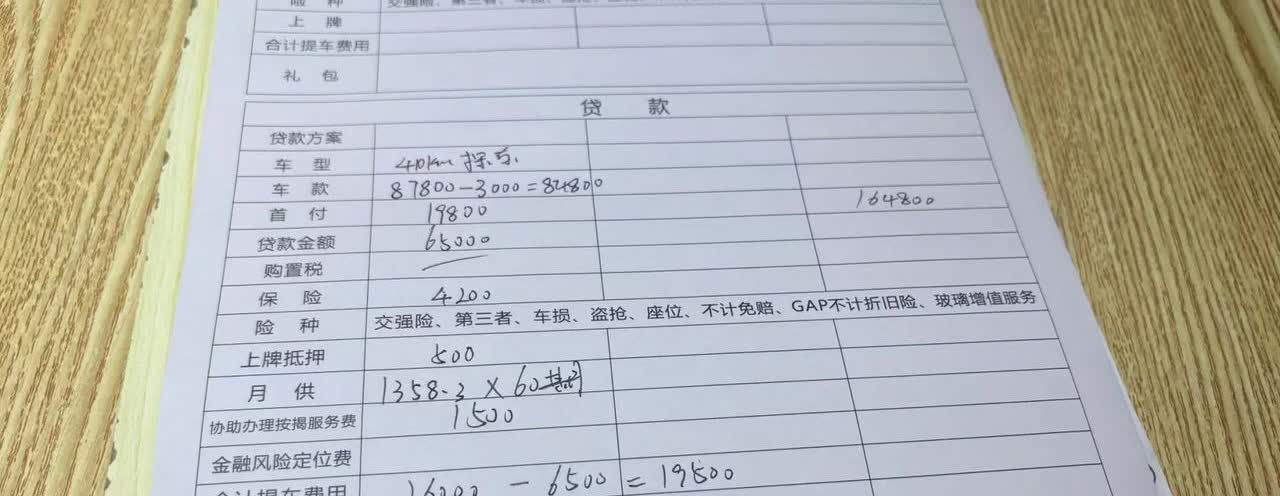 险 种 交强险、第三者、车损、盗抢、
上 牌
合计提车费用
礼 包
贷 款
贷款方案
车 型 410km
车 款 87800-3000=84800
首 付 19800 164800
贷款金额 65000
购置税
保 险 4200
险 种 交强险、第三者、车损、盗抢、座位、不计免赔、GAP不计折旧险、玻璃增值服务
上牌抵押 500
月 供 1358.3×60期
协助办理按揭服务费 1500
金融风险定位费
合计提车费用 - 6500=19500